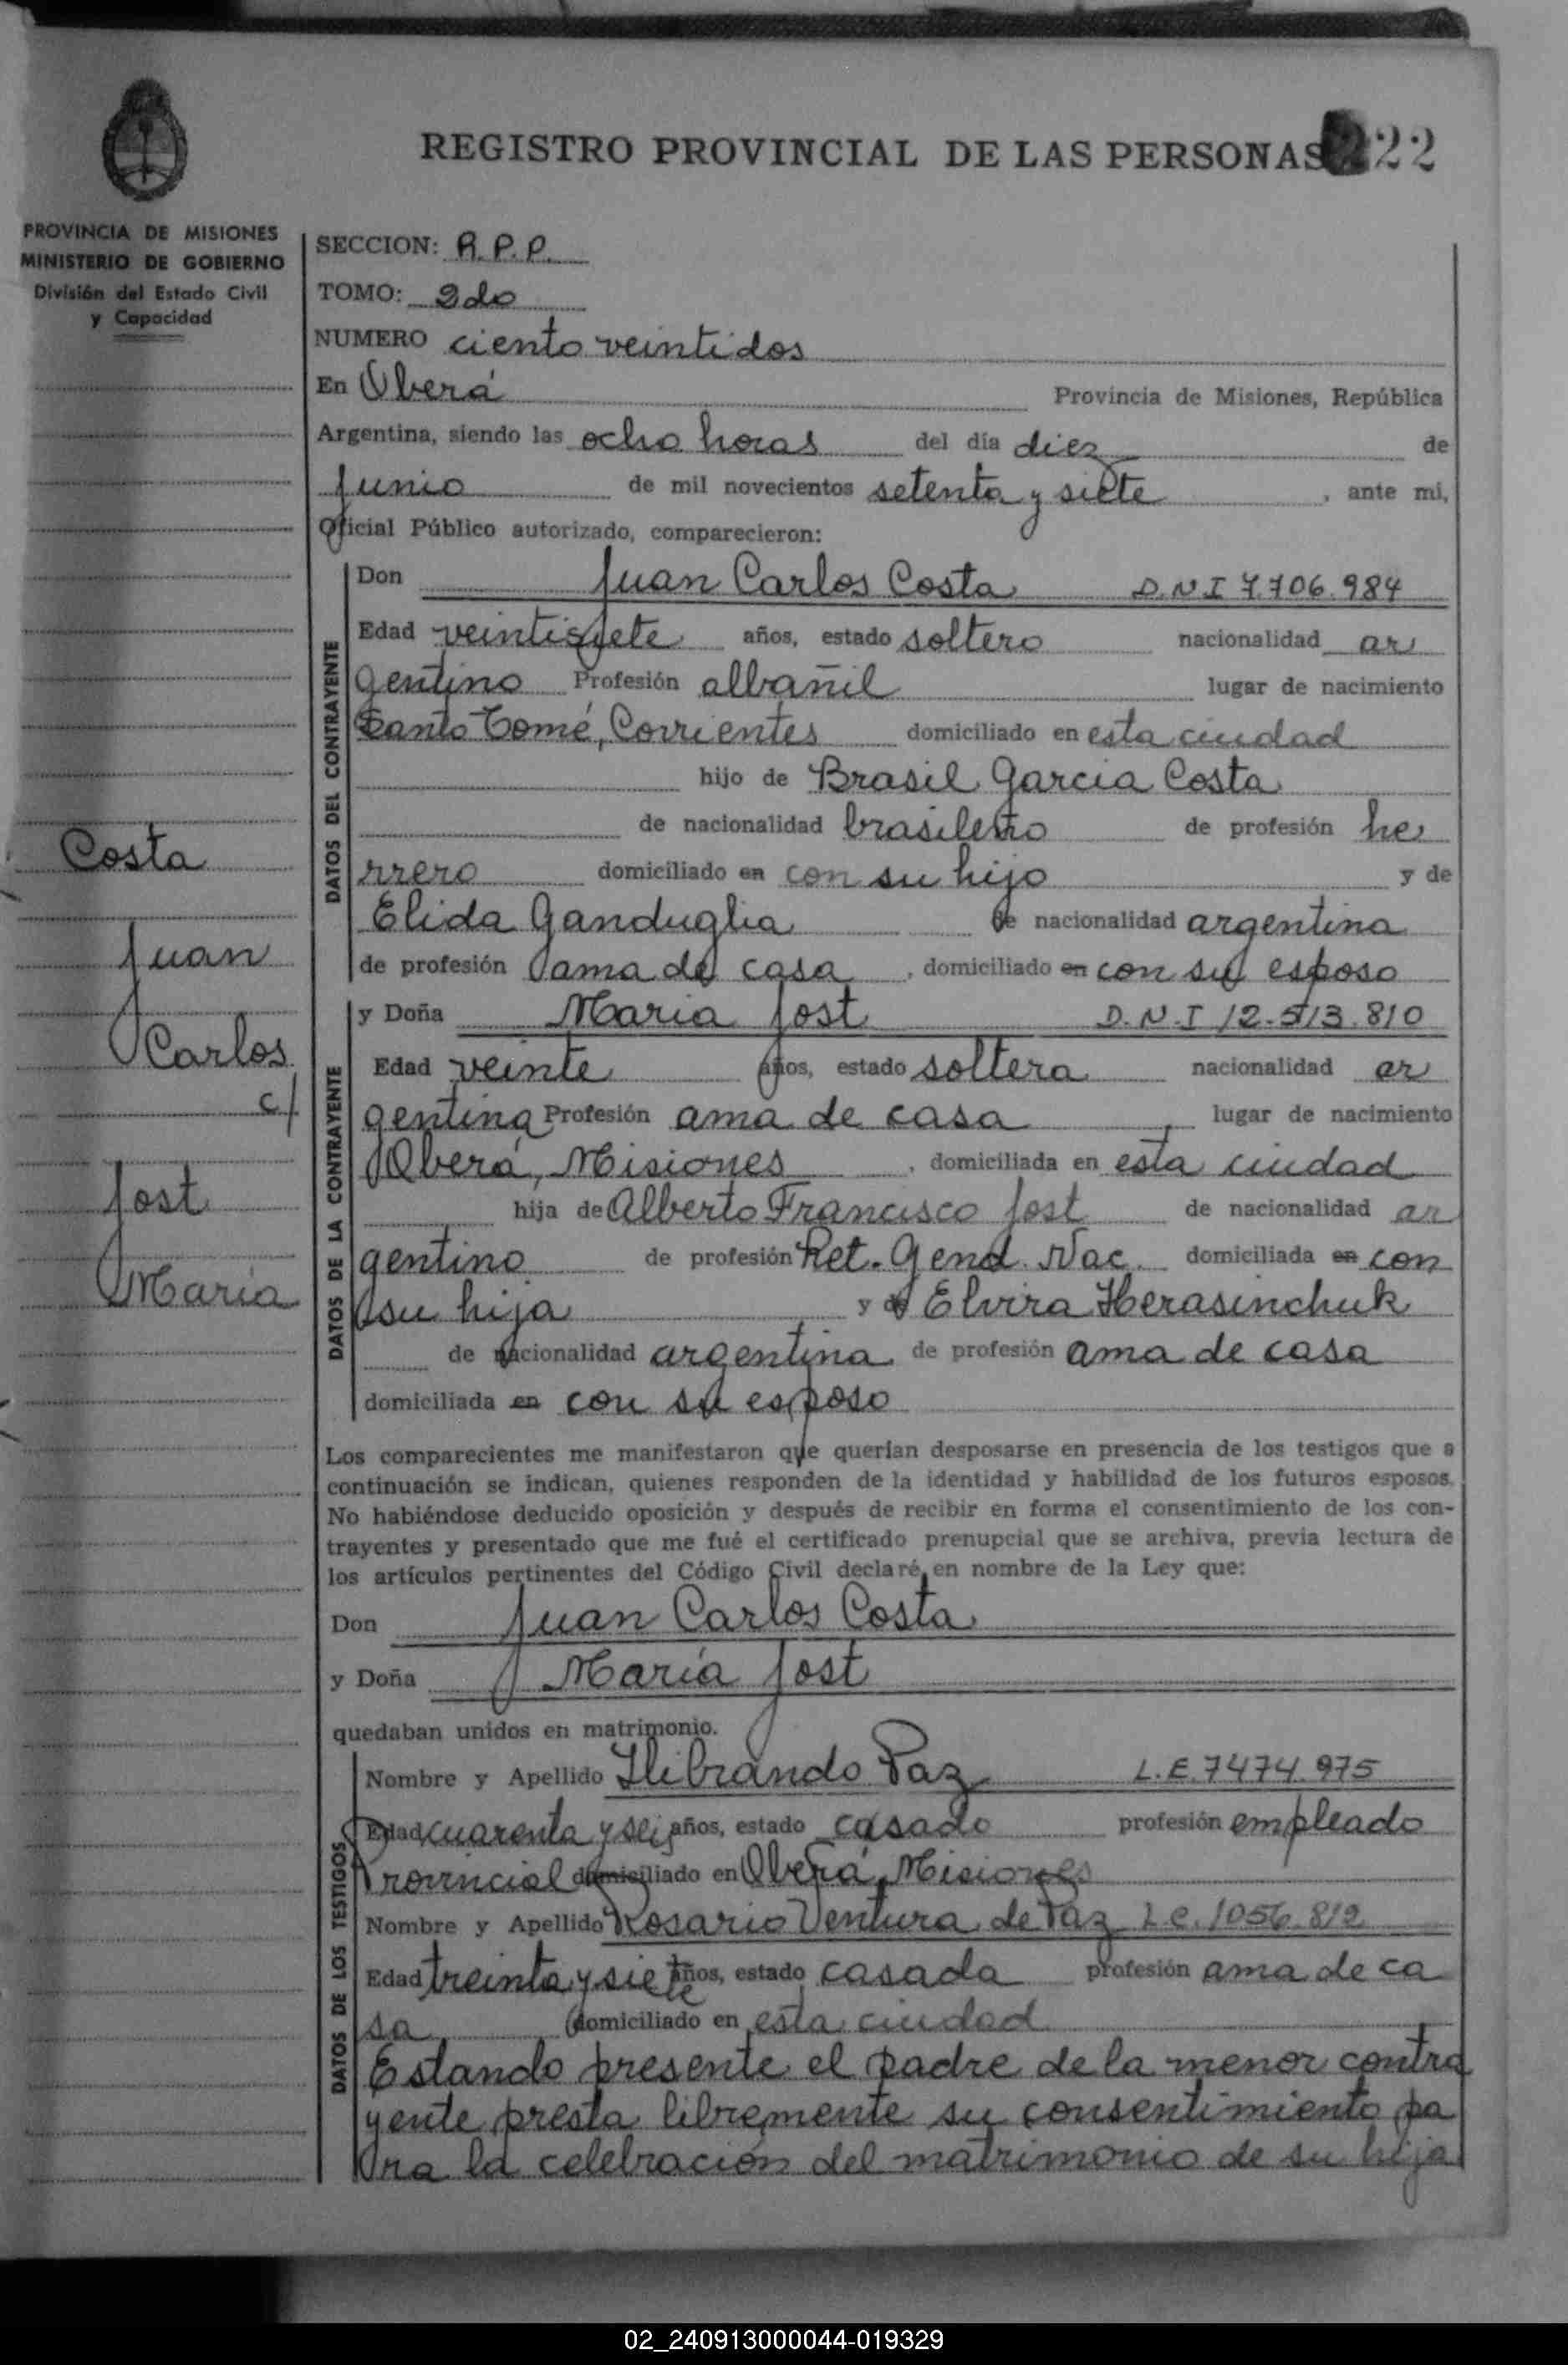 REGISTRO PROVINCIAL DE LAS PERSONAS 22
PROVINCIA DE MISIONES
MINISTERIO DE GOBIERNO
División del Estado Civil
y Capacidad
Costa
Juan
Carlos
c/
Jost
María
SECCION: R.P.P.
TOMO: 2do
NUMERO ciento veintidos
En Oberá Provincia de Misiones, República
Argentina, siendo las ocho horas del día diez de
Junio de mil novecientos setenta y siete, ante mi,
Oficial Público autorizado, comparecieron:
DATOS DEL CONTRAYENTE
Don Juan Carlos Costa D.N.I 7.706.984
Edad veintisiete años, estado soltero nacionalidad ar
gentino Profesión albañil lugar de nacimiento
Santo Tomé, Corrientes domiciliado en esta ciudad
hijo de Brasil Garcia Costa
de nacionalidad brasileño de profesión he
rrero domiciliado en con su hijo y de
Elida Ganduglia de nacionalidad argentina
de profesión ama de casa, domiciliado en con su esposo
DATOS DE LA CONTRAYENTE
y Doña Maria Jost D.N.I 12.513.810
Edad veinte años, estado soltera nacionalidad ar
gentina Profesión ama de casa, lugar de nacimiento
Oberá, Misiones, domiciliada en esta ciudad
hija de Alberto Francisco Jost de nacionalidad ar
gentino de profesión Ret. Gend. Nac. domiciliada en con
su hija y de Elvira Herasinchuk
de nacionalidad argentina de profesión ama de casa
domiciliada en con su esposo
Los comparecientes me manifestaron que querían desposarse en presencia de los testigos que a
continuación se indican, quienes responden de la identidad y habilidad de los futuros esposos.
No habiéndose deducido oposición y después de recibir en forma el consentimiento de los con-
trayentes y presentado que me fué el certificado prenupcial que se archiva, previa lectura de
los artículos pertinentes del Código Civil declaré en nombre de la Ley que:
Don Juan Carlos Costa
y Doña María Jost
quedaban unidos en matrimonio.
DATOS DE LOS TESTIGOS
Nombre y Apellido Ilibrando Paz L.E. 7474.975
Edad cuarenta y seis años, estado casado profesión empleado
Provincial domiciliado en Oberá, Misiones
Nombre y Apellido Rosario Ventura de Paz L.C. 1056.812
Edad treinta y siete años, estado casada profesión ama de ca
sa domiciliado en esta ciudad
Estando presente el padre de la menor contra
yente presta libremente su consentimiento pa
ra la celebración del matrimonio de su hija
02_240913000044-019329